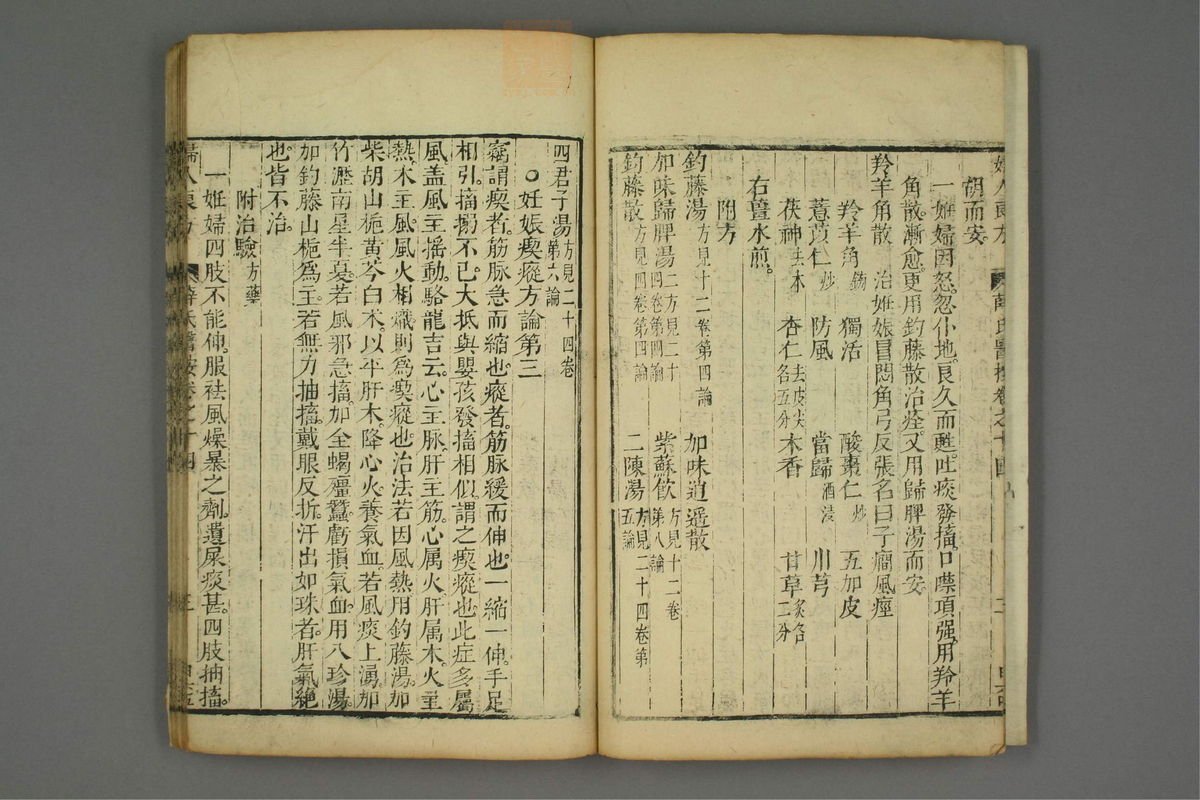 婦人良方 薛氏醫按卷之十四 二
胡而安。
一妊婦因怒忽仆地。良久而甦。吐痰發搐。口噤項强。用羚羊
角散。漸愈。更用鈎藤散治痊。又用歸脾湯而安。
羚羊角散 治妊娠冒悶角弓反張名曰子癇風痙
羚羊角鎊 獨活 酸棗仁炒 五加皮
薏苡仁炒 防風 當歸酒浸 川芎
茯神去木 杏仁去皮尖各五分 木香 甘草炙各二分
右薑水煎。
附方
鈎藤湯方見十二卷第四論 加味逍遥散
加味歸脾湯二方見二十四卷第四論 紫蘇飲方見十二卷第八論
鈎藤散方見四卷第四論 二陳湯方見二十四卷第五論
四君子湯方見二十四卷第六論
○妊娠瘈瘲方論第三
竊謂瘈者。筋脉急而縮也。瘲者。筋脉緩而伸也。一縮一伸。手足
相引。搐搦不已。大抵與嬰孩發搐相似。謂之瘈瘲也。此症多屬
風。盖風主摇動。駱龍吉云。心主脉。肝主筋。心属火。肝属木。火主
熱。木主風。風火相熾。則爲瘈瘲也。治法若因風熱。用鈎藤湯。加
柴胡山栀黄芩白术。以平肝木。降心火。養氣血。若風痰上湧。加
竹瀝南星半夏。若風邪急搐。加全蝎殭蠶。虧損氣血。用八珍湯。
加鈎藤山栀爲主。若無力抽搐。戴眼反折。汗出如珠者。肝氣絶
也。皆不治。
附治驗方藥
一妊婦四肢不能伸。服祛風燥暴之劑。遺尿痰甚。四肢抽搐。
婦人良方 薛氏醫按卷之十四 三